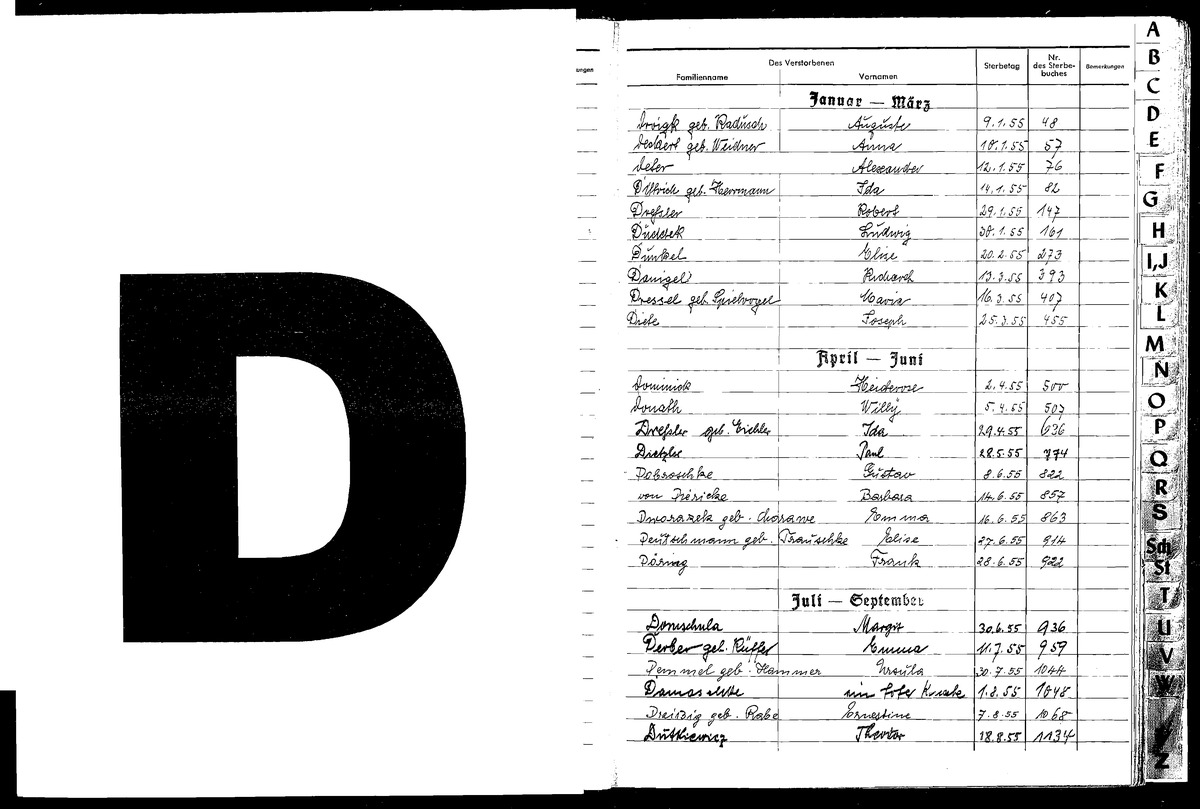 D
ungen
Des Verstorbenen
Familienname Vornamen Sterbetag Nr. des Sterbe- buches Bemerkungen
Januar — März
Droigk geb. Radusch Auguste 9.1.55 48
Deckert geb. Weidner Anna 10.1.55 57
Deter Alexander 12.1.55 76
Dittrich geb. Herrmann Ida 14.1.55 82
Dreßler Robert 29.1.55 147
Duddek Ludwig 30.1.55 161
Dunkel Elise 20.2.55 273
Danigel Richard 13.3.55 393
Dressel geb. Spielvogel Maria 16.3.55 407
Diete Joseph 25.3.55 455
April — Juni
Dominick Heiderose 2.4.55 500
Donath Willy 5.4.55 507
Dreßler geb. Eichler Ida 29.4.55 636
Dietzle Paul 28.5.55 774
Dobroschke Gustav 8.6.55 822
von Diericke Barbara 14.6.55 857
Dworazek geb. Emma 16.6.55 863
Deutschmann geb. Trauschke Elise 27.6.55 914
Döring Frank 28.6.55 922
Juli — September
Domschula Margit 30.6.55 936
Derber geb. Emma 11.7.55 959
Demmel geb. Hammer Ursula 30.7.55 1044
Damaschke 1.8.55 1048
Dreißig geb. Rabe Ernestine 7.8.55 1068
Dutkiewicz Theodor 18.8.55 1134
A
B
C
D
E
F
G
H
I,J
K
L
M
N
O
P
Q
R
S
Sch
St
T
U
V
W
Z